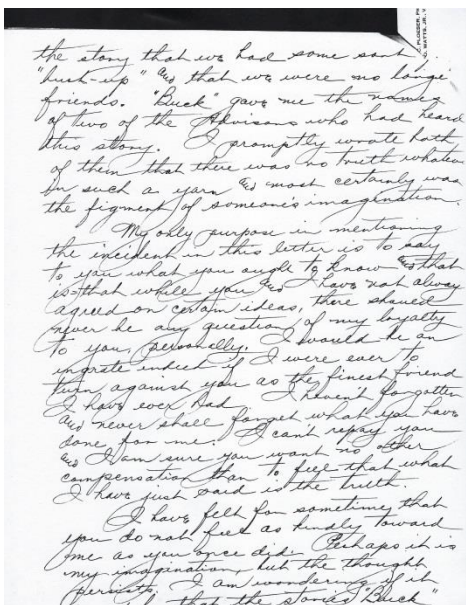 C. PLOESER, PR
D. WATTS, JR., V
the story that we had some sort
"bust-up" and that we were no longe
friends. "Buck" gave me the names
of two of the Advisors who had heard
this story. I promptly wrote both
of them that there was no truth whatever
in such a yarn and most certainly was
the figment of someone's imagination.
My only purpose in mentioning
the incident in this letter is to say
to you what you ought to know and that
is - that while you and I have not always
agreed on certain ideas, there should
never be any question of my loyalty
to you, personally. I would be an
ingrate indeed if I were ever to
turn against you as the finest friend
I have ever had. I haven't forgotten
and never shall forget what you have
done for me. I can't repay you
and I am sure you want no other
compensation than to feel that what
I have just said is the truth.
I have felt for sometime that
you do not feel as kindly toward
me as you once did. Perhaps it is
my imagination, but the thought
persists. I am wondering if it
that the stories "Buck"